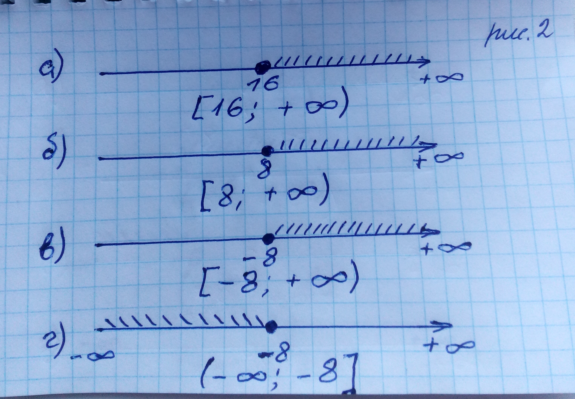 рис. 2
а)
16
+∞
[16; +∞)
б)
8
+∞
[8; +∞)
в)
-8
+∞
[-8; +∞)
г)
-∞
-8
+∞
(-∞; -8]